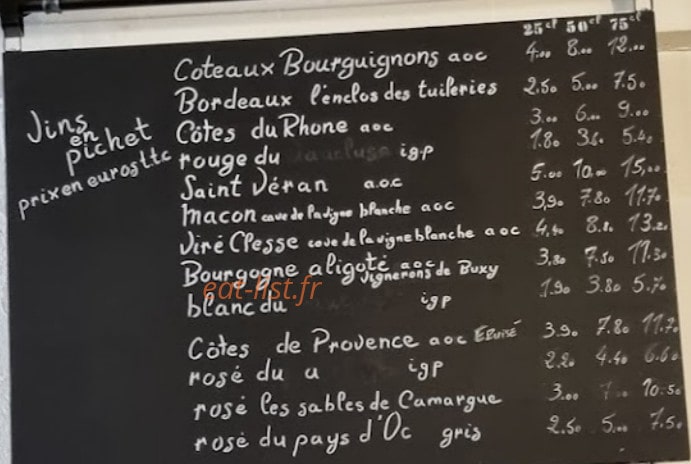 25cl 50cl 75cl
Coteaux Bourguignons aoc 4.00 8.00 12.00
Bordeaux l'enclos des tuileries 2.50 5.00 7.50
Côtes du Rhone aoc 3.00 6.00 9.00
Vins en pichet
prix en euros t.t.c
rouge du igp 1.80 3.60 5.40
Saint Véran a.o.c 5.00 10.00 15,00
macon cave de la vigne blanche aoc 3,90 7.80 11.70
Viré Clesse cave de la vigne blanche aoc 4,40 8.80 13.20
Bourgogne aligoté aoc vignerons de Buxy 3,80 7.50 11.30
eat-list.fr
blanc du igp 1.90 3.80 5.70
Côtes de Provence aoc EPUISÉ 3.90 7.80 11.70
rosé du igp 2.20 4.40 6.60
rosé les sables de Camargue 3.00 10.50
rosé du pays d'Oc gris 2.50 5.00 7.50